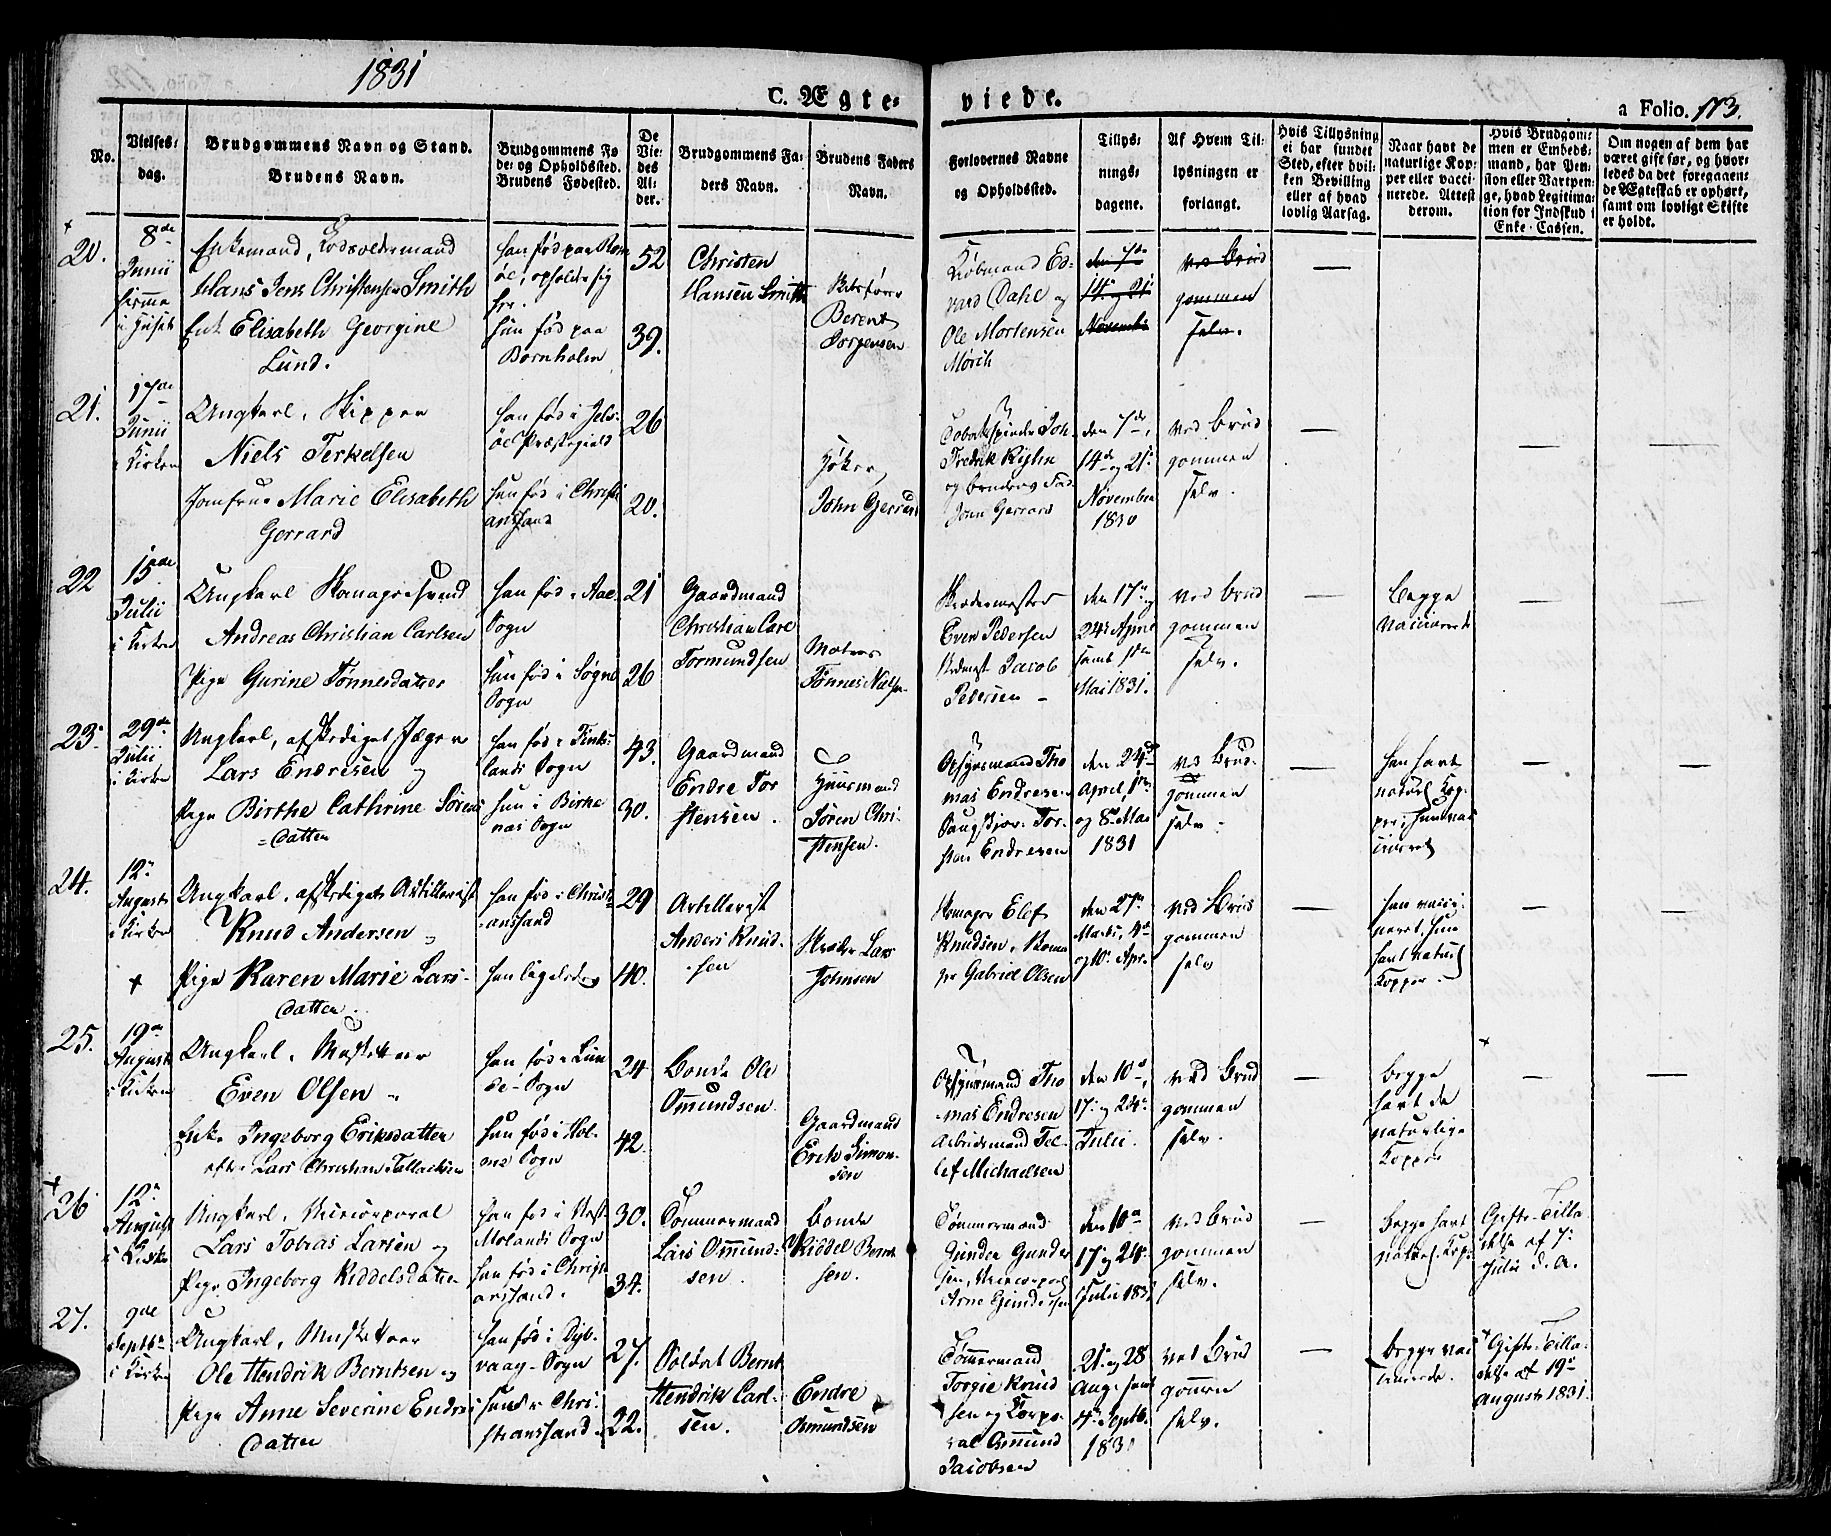 1831
C. Ægte-viede.
a Folio. 173.
No.
Vielses-dag.
Brudgommens Navn og Stand.
Brudens Navn.
Brudgommens Fø-
de- og Opholdssted.
Brudens Fødested.
De
Vie-
des
Al-
der.
Brudgommens Fa-
ders Navn.
Brudens Faders
Navn.
Forlovernes Navne
og Opholdssted.
Tillys-
nings-
dagene.
Af Hvem Til-
lysningen er
forlangt.
Hvis Tillysning
ei har fundet
Sted, efter hvil-
ken Bevilling
eller af hvad
lovlig Aarsag.
Naar havt de
naturlige Kop-
per eller vacci-
nerede. Attest
derom.
Hvis Brudgom-
men er Embeds-
mand, har Pen-
sion eller Vartpen-
ge, hvad Legitima-
tion for Indskud i
Enke-Cassen.
Om nogen af dem har
været gift før, og hvor-
ledes da det foregaaen-
de Ægteskab er ophørt,
samt om lovligt Skifte
er holdt.
20.
8de
Junii
hjemme
i Huset
Enkemand,
Hans Jens Christensen Smith
Enk Elisabeth Georgine
Lund.
han fød paa
opholder sig
her.
hun fød paa
Bornholm
52
39.
Christen
Hansen Smith
Berent
Jørgensen
Kiøbmand Ed-
vard Dahl og
Ole Mortensen
Mørch
den 7de
14de og 21de
November
ved Brud
gommen
selv.
21.
17de
Junii
i Kirken
Ungkarl, Skipper
Niels Terkelsen
Jomfrue Marie Elisabeth
Gerrard
han fød i Jels-
øe Præstegield
hun fød i Christi
anssand
26
20.
Høker
John Gerrard
Fredrik
og Brudens Fad.
John Gerrard
den 7de,
14de og 21de
November
1830
ved Brud
gommen
selv.
22
15de
Julii
i Kirken
Ungkarl Skomagersvend
Andreas Christian Carlsen
Pige Gurine Tønnesdatter
han fød i
Sogn
hun fød i Søgne
Sogn
21
26
Gaardmand
Christian Carl
Tormundsen
Matros
Tønnes Nielsen
Skrædermester
Even Pedersen
Jacob
Pedersen
den 17de og
24de April
samt 1ste
Mai 1831.
ved Brud
gommen
selv.
Begge
vaccinerede
23.
29de
Julii
i Kirken
Ungkarl, afskediget Jæger
Lars Endresen og
Pige Birthe Cathrine Sørens
datter
han fød i
lands Sogn
hun i Birke
næs Sogn
43.
30.
Gaardmand
Endre Tor
stensen.
Huusmand
Søren Chri-
stensen.
Opsynsmand Tho
mas Endresen
Tor-
sten Endresen
den 24de
April, 1ste
og 8de Mai
1831
ved Brud-
gommen
selv.
han havt
naturl. Kop-
per, hun vac
cineret
24.
12te
August
i Kirken
Ungkarl, afskediget Artillerist
Knud Andersen
Pige Karen Marie Lars-
datter.
han fød i Christi-
anssand
hun ligeledes
29
40.
Artillerist
Anders Knud-
sen
Skræder Lars
Johnsen
Skomager Elef
Knudsen, Skoma
ger Gabriel Olsen
den 27de
Marts, 4de
og 10de Apr.
ved Brud
gommen
selv
han vacci-
neret, hun
havt naturl
Kopper.
25.
19de
August
i Kirken
Ungkarl, Musketeer
Even Olsen
Enke Ingeborg Eriksdatter
efter Lars Christian Tallaksen
han fød i Lun
de-Sogn
hun fød i Hol-
me Sogn
24
42.
Bonde Ole
Omundsen.
Gaardmand
Erik Simon-
sen
Opsynsmand Tho
mas Endresen
Arbeidsmand Tel-
lef Michaelsen
den 10de,
17de og 24de
Julii.
ved Brud
gommen
selv.
begge
havt de
naturlige
Kopper
26
12te
August
i Kirke
Ungkarl, Vicecorporal
Lars Tobias Larsen og
Pige Ingeborg Kiddelsdatter
han fød i Vest-
Molands Sogn
hun fød i Christi
anssand.
30.
34.
Tømmermand
Lars Omund-
sen.
Bonde
Kiddel Bernt
sen.
Tømmermand
Gunder Gunder
sen, Vicecorporal
Arne Gundersen
den 10de
17de og 24de
Julii 1831
ved Brud
gommen
selv.
begge havt
naturl. Kop.
Gifte-Tilla
delse af 7de
Julii d. A.
27.
9de
Septbr
i Kirken
Ungkarl, Musketeer
Ole Hendrik Berntsen og
Pige Anne Severine Endres
datter
han fød i Dyb-
vaag-Sogn
hun i Chri-
stianssand.
27.
22.
Soldat Bernt
Hendrik Carl-
sen.
Endre
Osmundsen
Tømmermand
Torgie Knud
sen og Corpo-
ral Osmund
Jacobsen
21de og 28
Aug. samt
4de Septb.
1831
ved Brud
gommen
selv.
begge vac
cinerede.
Gifte-Tilla-
delse af 19de
August 1831.